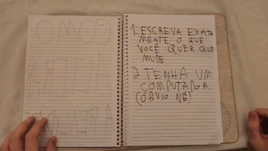 1. ESCREVA EXATA
MENTE O QUE
VOCÊ QUER QUE
MUDE
2 TENHA UM
COMPUTADOR
(ÓBVIO NÉ)